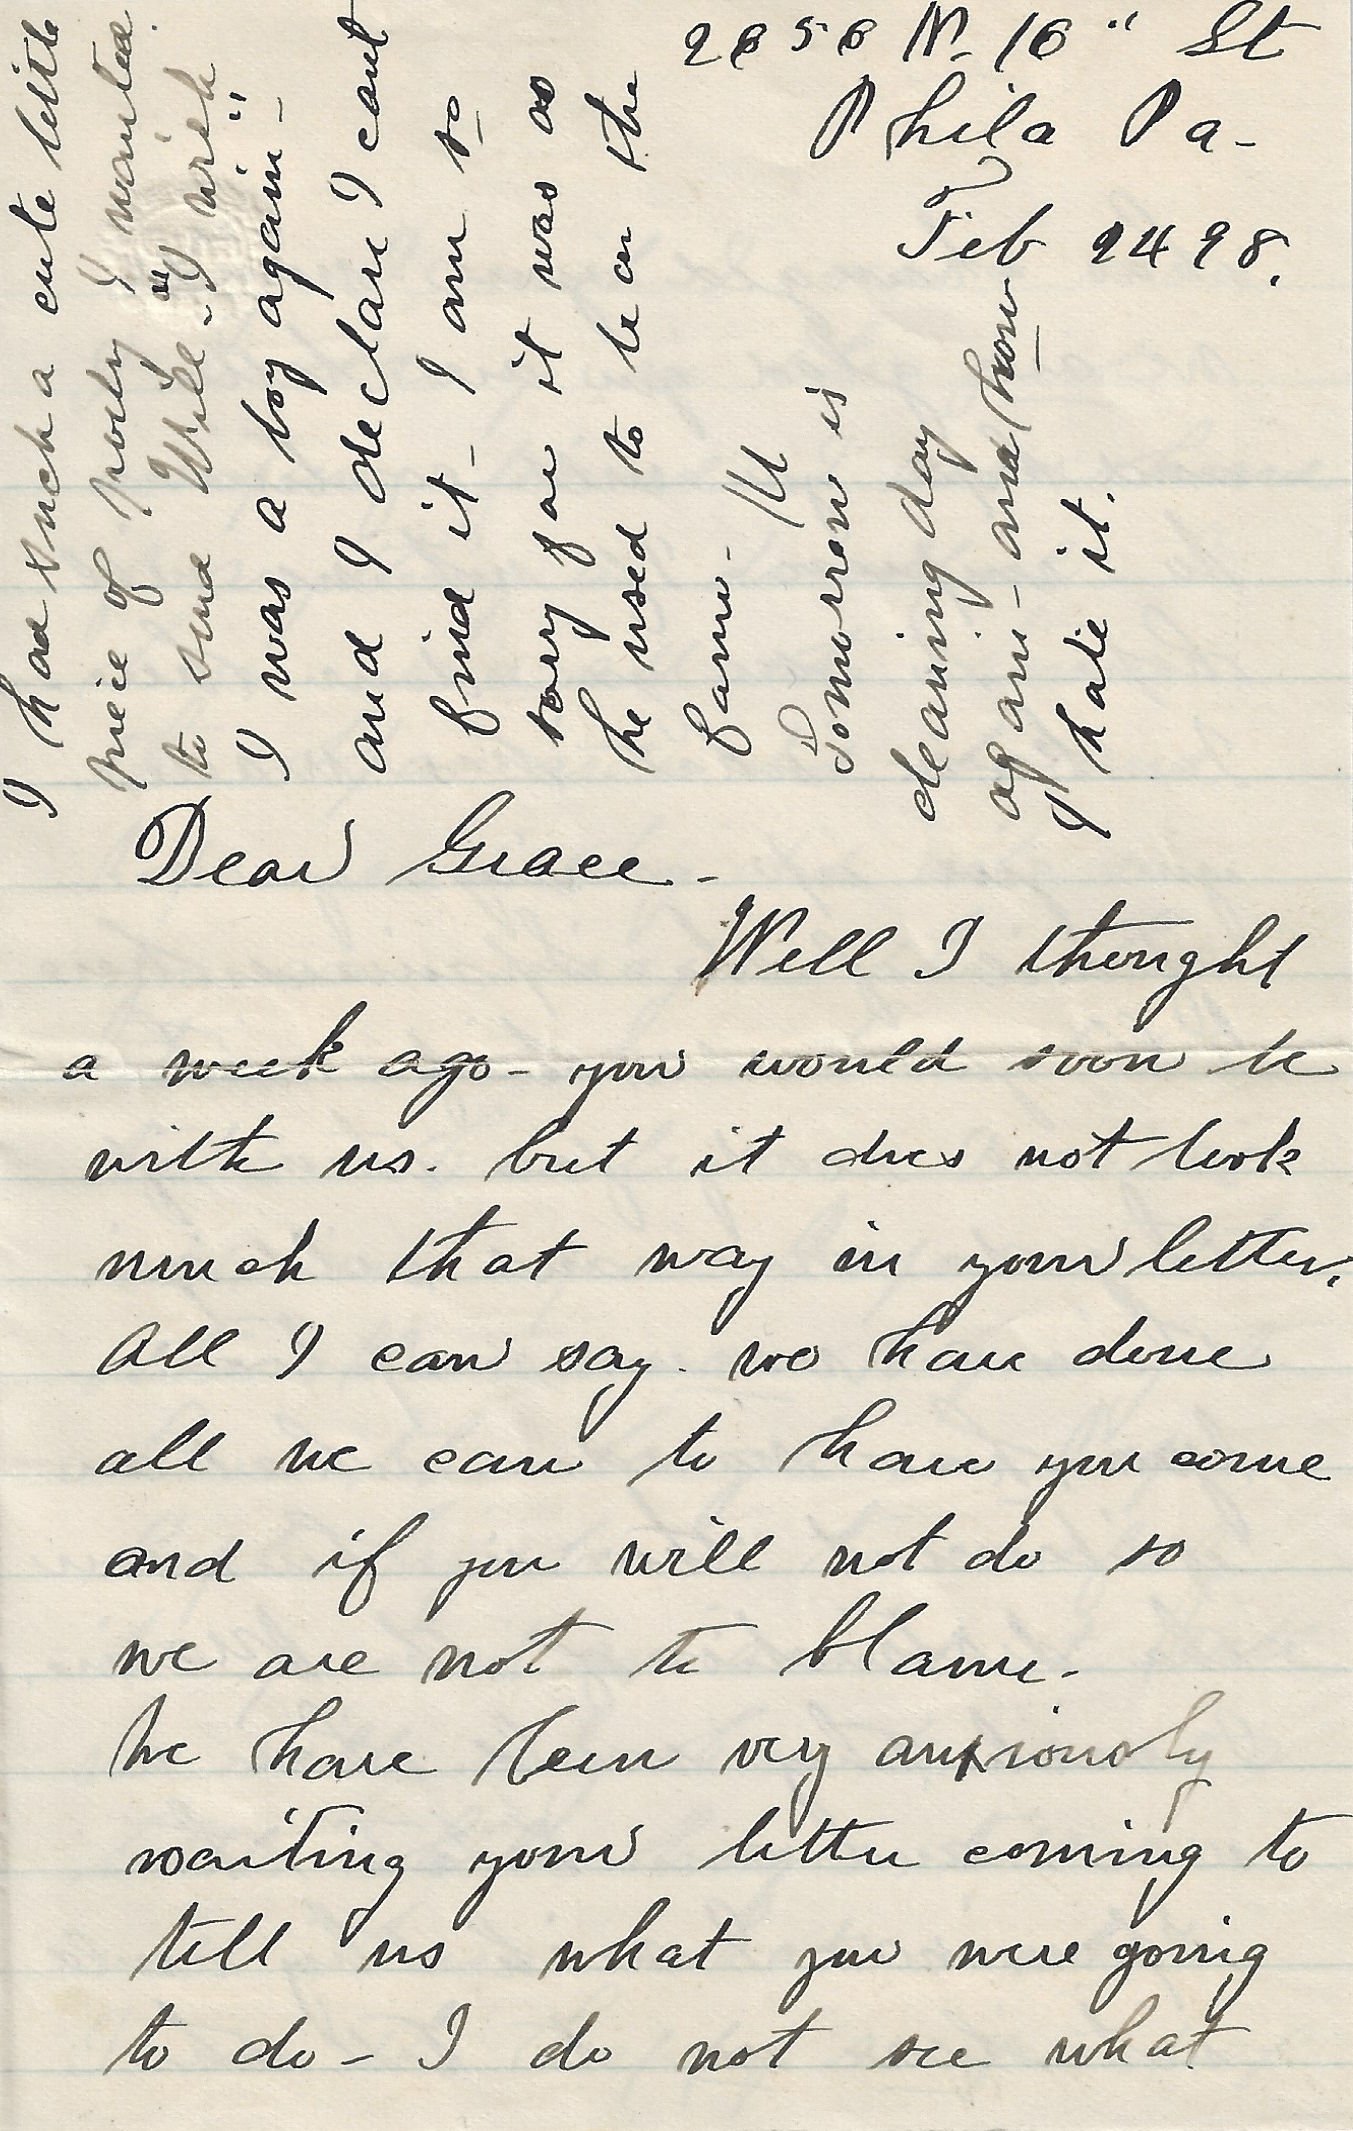 2656 N. 16" St
Phila Pa-
Feb 24 98.
Dear Grace-
Well I thought
a week ago- you would soon be
with us. but it does not look
much that way in your letter.
All I can say. we have done
all we can to have you come
and if you will not do so
we are not to blame-
We have been very anxiously
waiting your letter coming to
tell us what you were going
to do- I do not see what
I had such a cute little
piece of poetry I wanted
to send Will - "I wish
I was a boy again"-
and I declare I cant
find it- I am so
sorry for it was as
he used to be on the
farm- M
Tomorrow is
cleaning day
again- and how
I hate it.